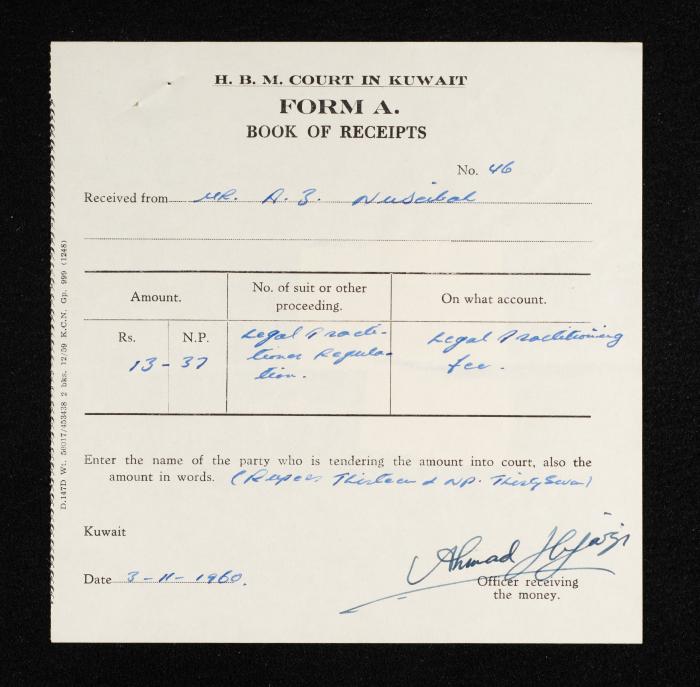 H. B. M. COURT IN KUWAIT
FORM A.
BOOK OF RECEIPTS
No. 46
Received from Mr. A. Z. Nuseibah
Amount.
No. of suit or other
proceeding.
On what account.
Rs. N.P.
13 - 37
Legal Practi-
tioner Regula-
tion.
Legal Practitioning
fee.
Enter the name of the party who is tendering the amount into court, also the
amount in words. (Rupees Thirteen & NP. Thirty Seven)
Kuwait
Date 3-11-1960.
Ahmad
Officer receiving
the money.
D.147D Wt. 58017/453438 2 bks. 12/59 K.C.N. Gp. 999 (1248)